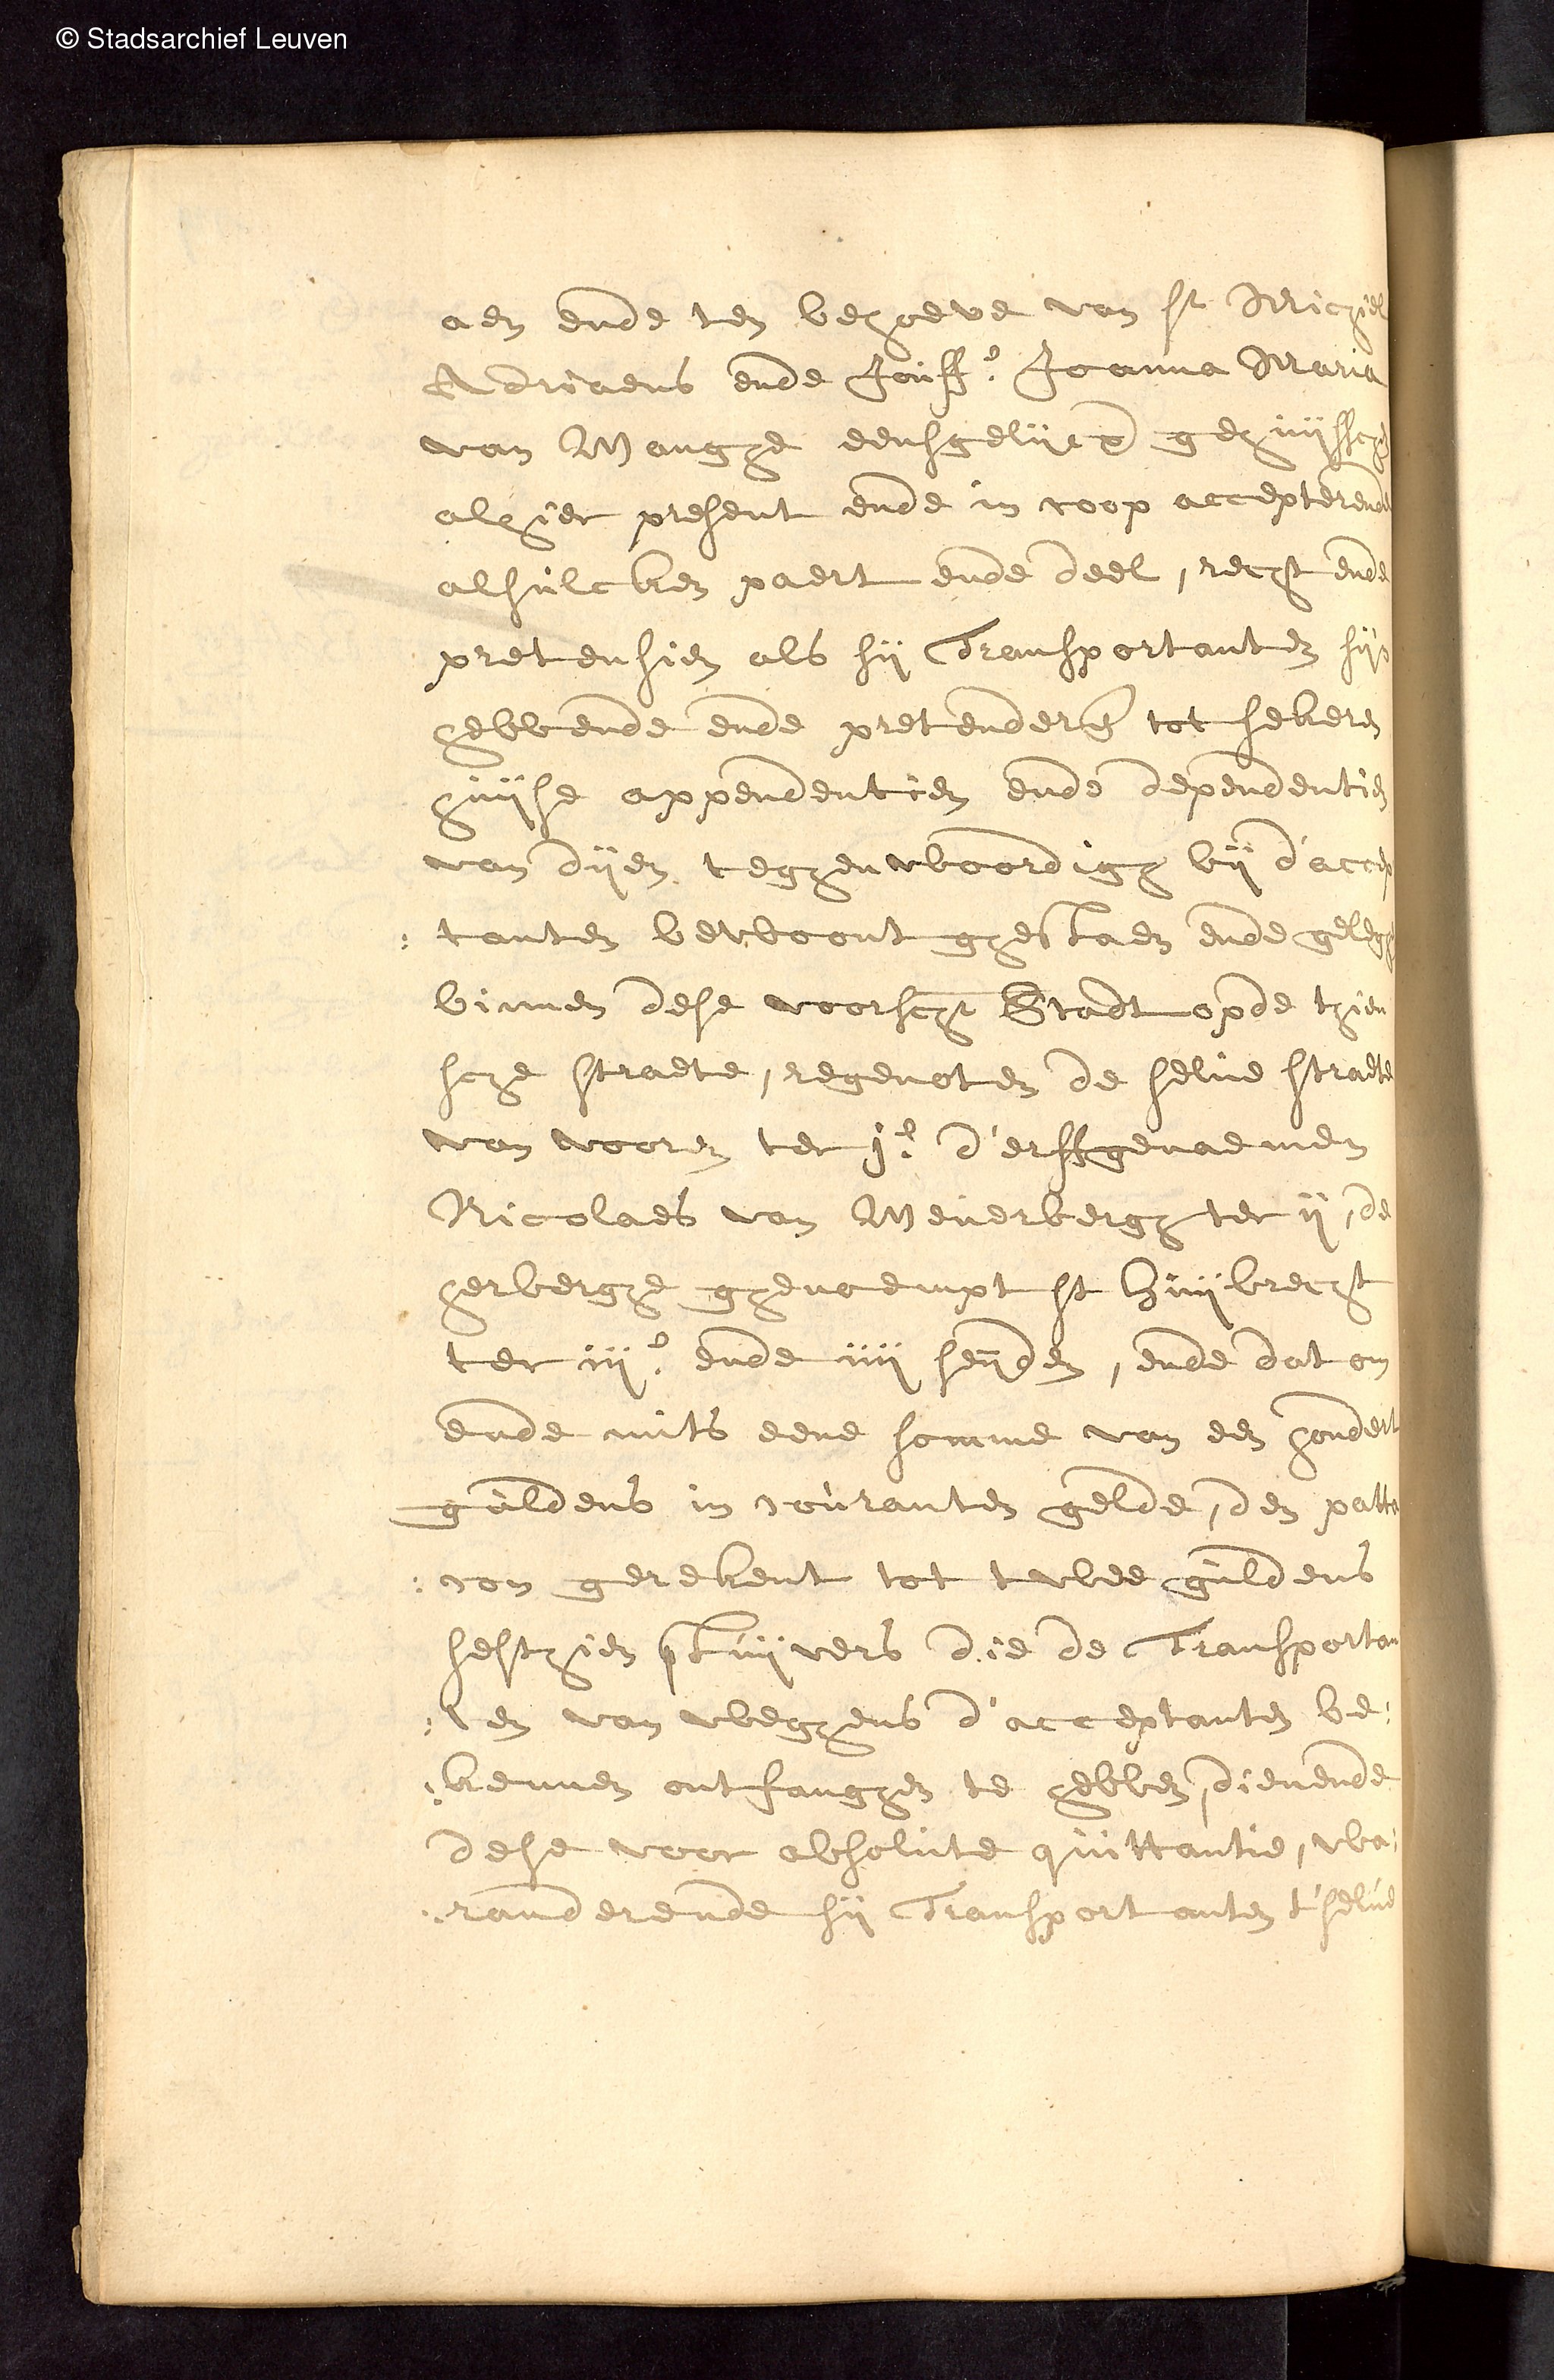 © Stadsarchief Leuven
aen ende ten behoeve van Sr Michiel
Adriaens ende Jouffe. Joanna Maria
van Wanghe eensgelijcx gehuijsschen
alhier present ende in coop accepterende
alsulcken paert ende deel, recht ende
pretensien als sij Transportanten sijn
hebbende ende pretenderen tot sekeren
huijse appendentien ende dependentien
van dijen teghenwoordigh bij d'accep
: tanten bewoont ghestaen ende geleghen
binnen dese voorscr Stadt opde thien
sche straete, regenoten de selve straete
van vooren ter je. d'erffgenaemen
Nicolaes van Meuerbergh ter ij, de
herberghe ghenoempt St Huijbrecht
ter iije. ende iiij seijden, ende dat om
ende mits eene somme van een hondert
guldens in couranten gelde, den patta
: con gerekent tot twee guldens
sesthien stuijvers die de Transportan
: ten van weghens d'acceptanten be:
: kennen ontfanghen te hebben, dienende
dese voor absolute quittantie, wa:
: randerende sij Transportanten t'selve